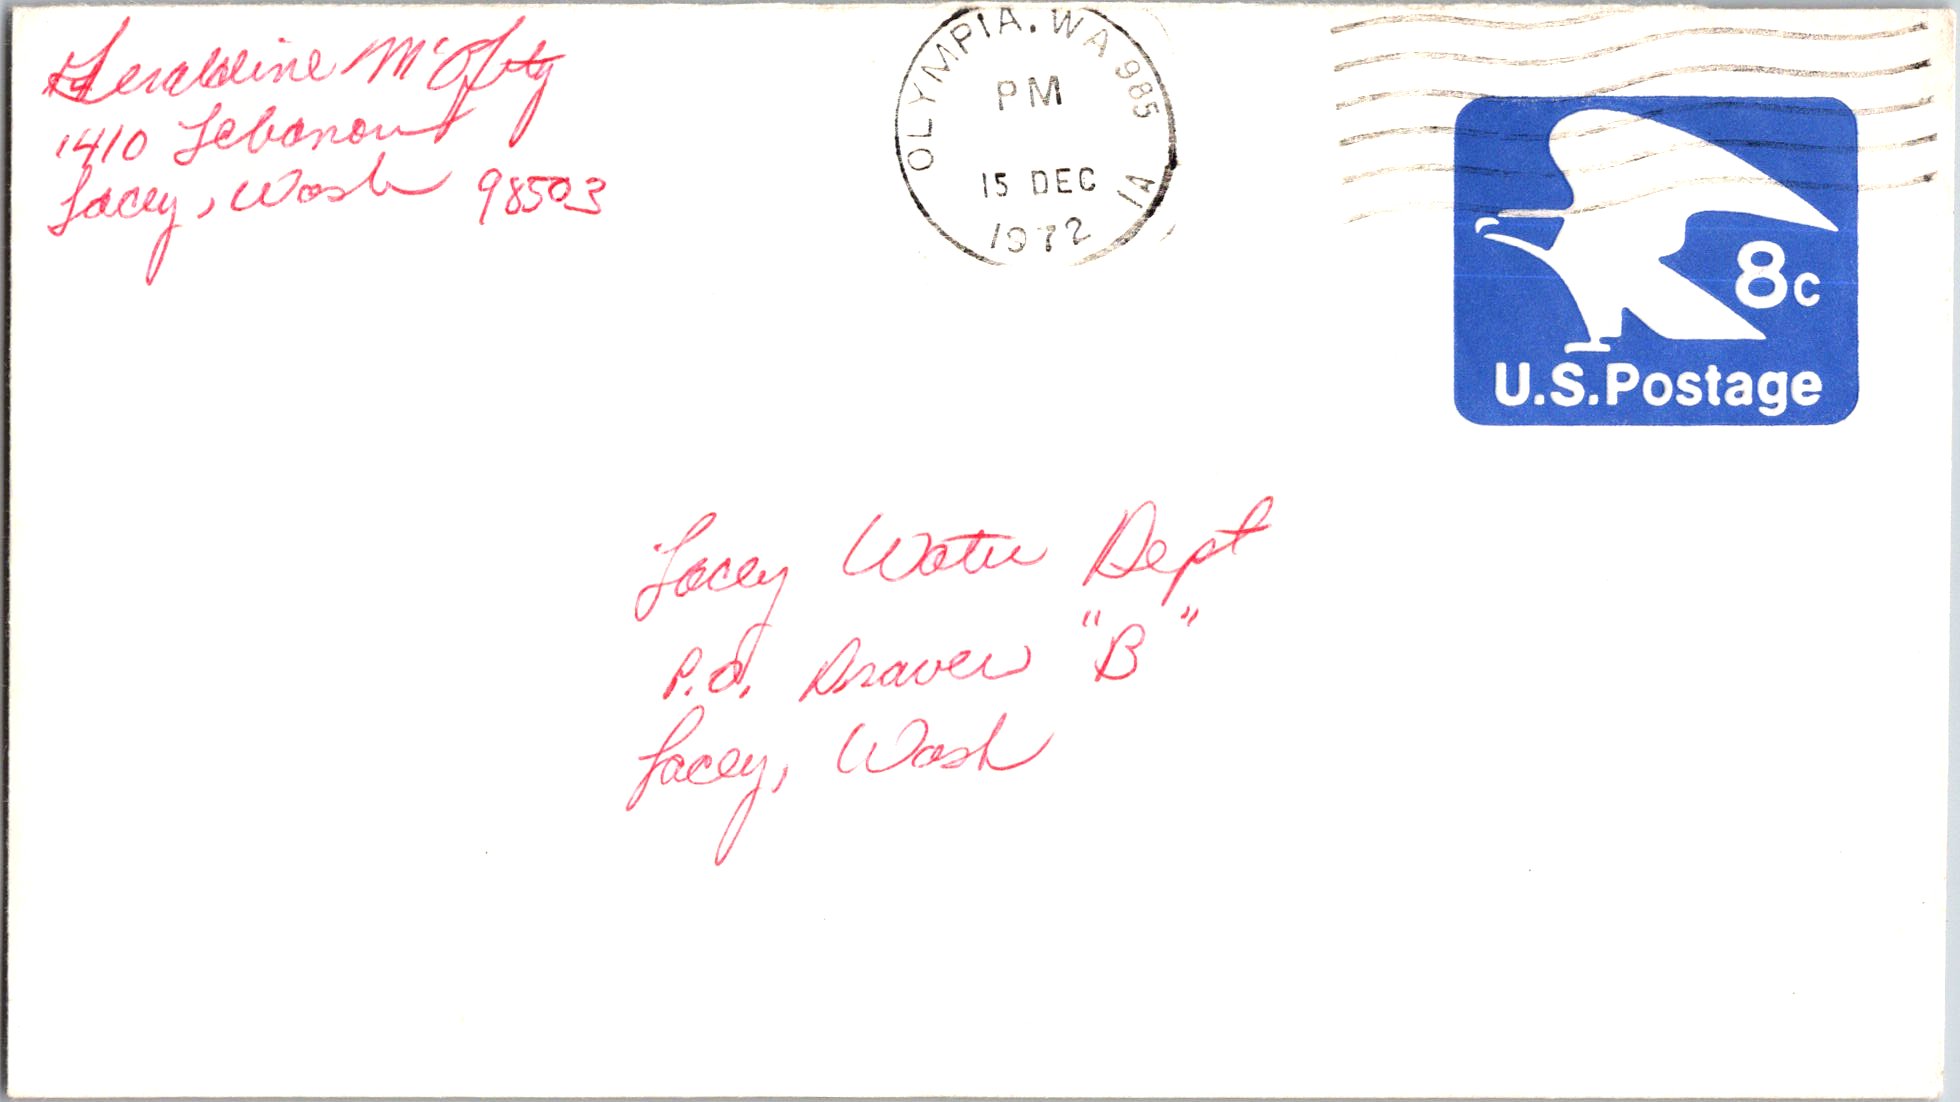 Geraldine
1410 Lebanon
Lacey, Wash 98503
OLYMPIA, WA 985
PM
15 DEC
1972
1A
8c
U.S. Postage
Lacey Water Dept
P.O. Drawer "B"
Lacey, Wash